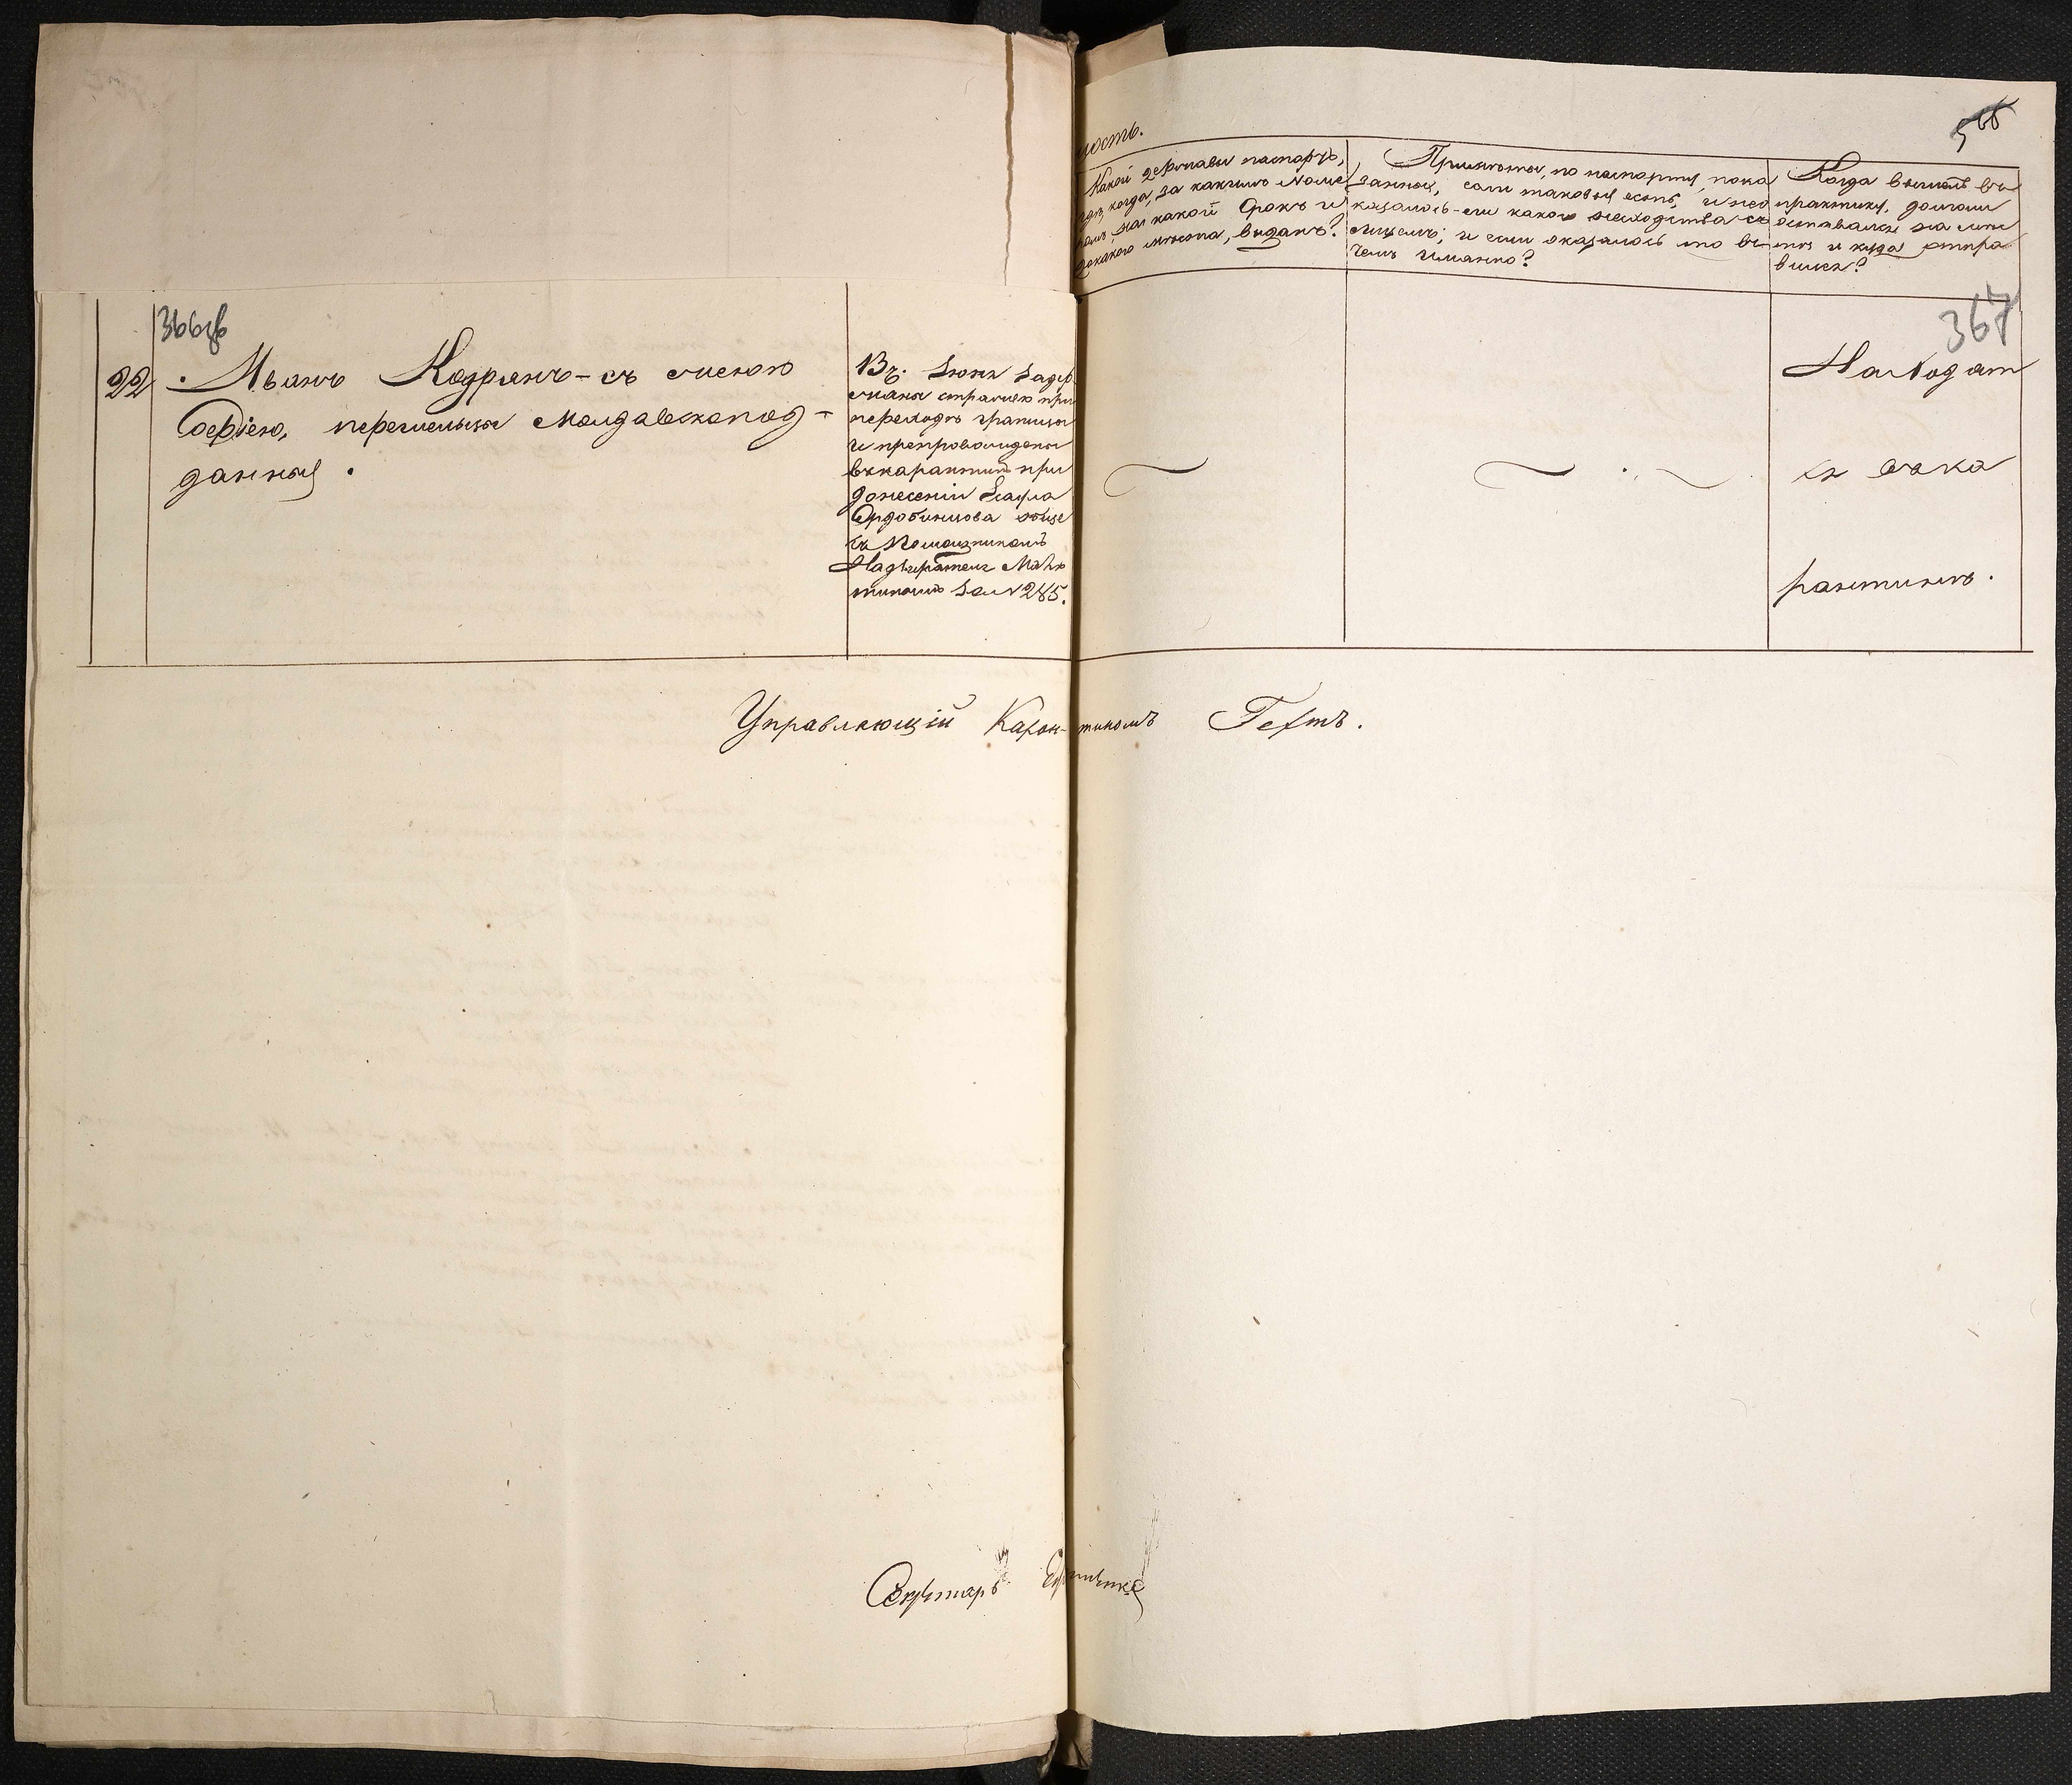 ность.
Какой державы паспортъ,
гдѣ, когда, за какимъ Номе
ромъ, на какой срокъ и
докакого мѣста, выданъ?
Примѣты, по паспорту пока
занныя, если таковыя есть, и неo
казалось-ли какого несходства съ
лицемъ; и если оказалось то въ
чемъ имянно?
Когда вышелъ въ
практику, долголи
оставался на мѣс
тѣ и куда отпра
вился?
366 об
367
22
Иванъ Кодрянъ - съ женою
Софіею, перешельцы Молдавскопод-
данныя.
13г. Іюня задер
жаны стражею при
переходѣ границы
и препровождены
въкарантинъ при
донесеніи
обще
съ Помощникомъ
Надзирателя
за N 285.
Находят
ся вка
рантинѣ.
Управляющій Каран-тиномъ Гетъ.
Секретарь